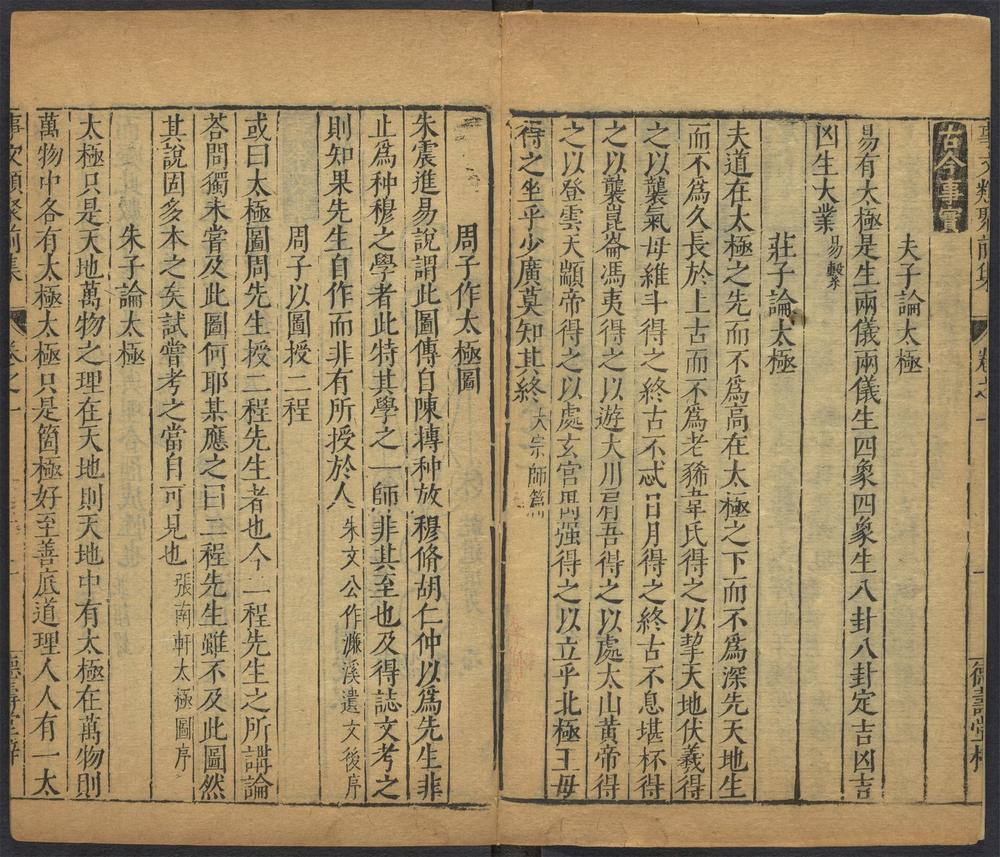 事文類聚前集 卷之一 一 德壽堂梓
古今事實
夫子論太極
易有太極是生兩儀兩儀生四象四象生八卦八卦定吉凶吉
凶生大業易繫
莊子論太極
夫道在太極之先而不爲高在太極之下而不爲深先天地生
而不爲久長於上古而不爲老狶韋氏得之以挈天地伏羲得
之以襲氣母維斗得之終古不忒日月得之終古不息堪杯得
之以襲崑崙馮夷得之以遊大川肩吾得之以處太山黃帝得
之以登雲天顓帝得之以處玄宮禺强得之以立乎北極王母
得之坐乎少廣莫知其終大宗師篇
周子作太極圖
朱震進易說謂此圖傳自陳摶种放穆脩胡仁仲以爲先生非
止爲种穆之學者此特其學之一師非其至也及得誌文考之
則知果先生自作而非有所授於人朱文公作濂溪遺文後序
周子以圖授二程
或曰太極圖周先生授二程先生者也今二程先生之所講論
荅問獨未嘗及此圖何耶某應之曰二程先生雖不及此圖然
其說固多本之矣試嘗考之當自可見也張南軒太極圖序
朱子論太極
太極只是天地萬物之理在天地則天地中有太極在萬物則
萬物中各有太極太極只是箇極好至善底道理人人有一太
事文類聚前集 卷之一